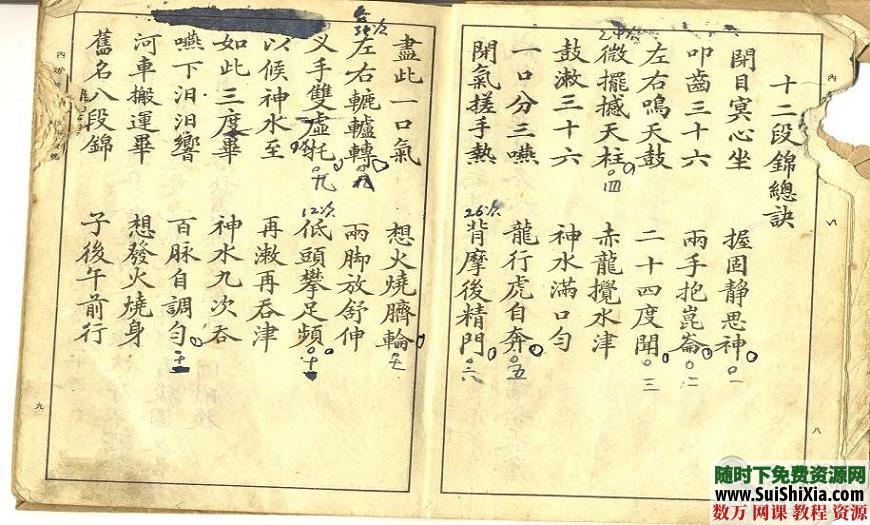 十二段錦總訣
閉目冥心坐 握固靜思神 一
叩齒三十六 兩手把崑崙 二
左右鳴天鼓 二十四度聞 三
24次
微擺撼天柱 四 赤龍攪水津
鼓漱三十六 神水滿口勻
一口分三嚥 龍行虎自奔 五
閉氣搓手熱 26次 背摩後精門 六
八
盡此一口氣 想火燒臍輪 七
36次
左右轆轤轉 兩脚放舒伸
叉手雙虛托 九 12次 低頭攀足頻 十
以候神水至 再漱再吞津
如此三度畢 神水九次吞
嚥下汩汩響 百脉自調勻
河車搬運畢 想發火燒身
舊名八段錦 子後午前行
九
随时下免费资源网
www.SuiShiXia.com
数万 网课 教程 资源